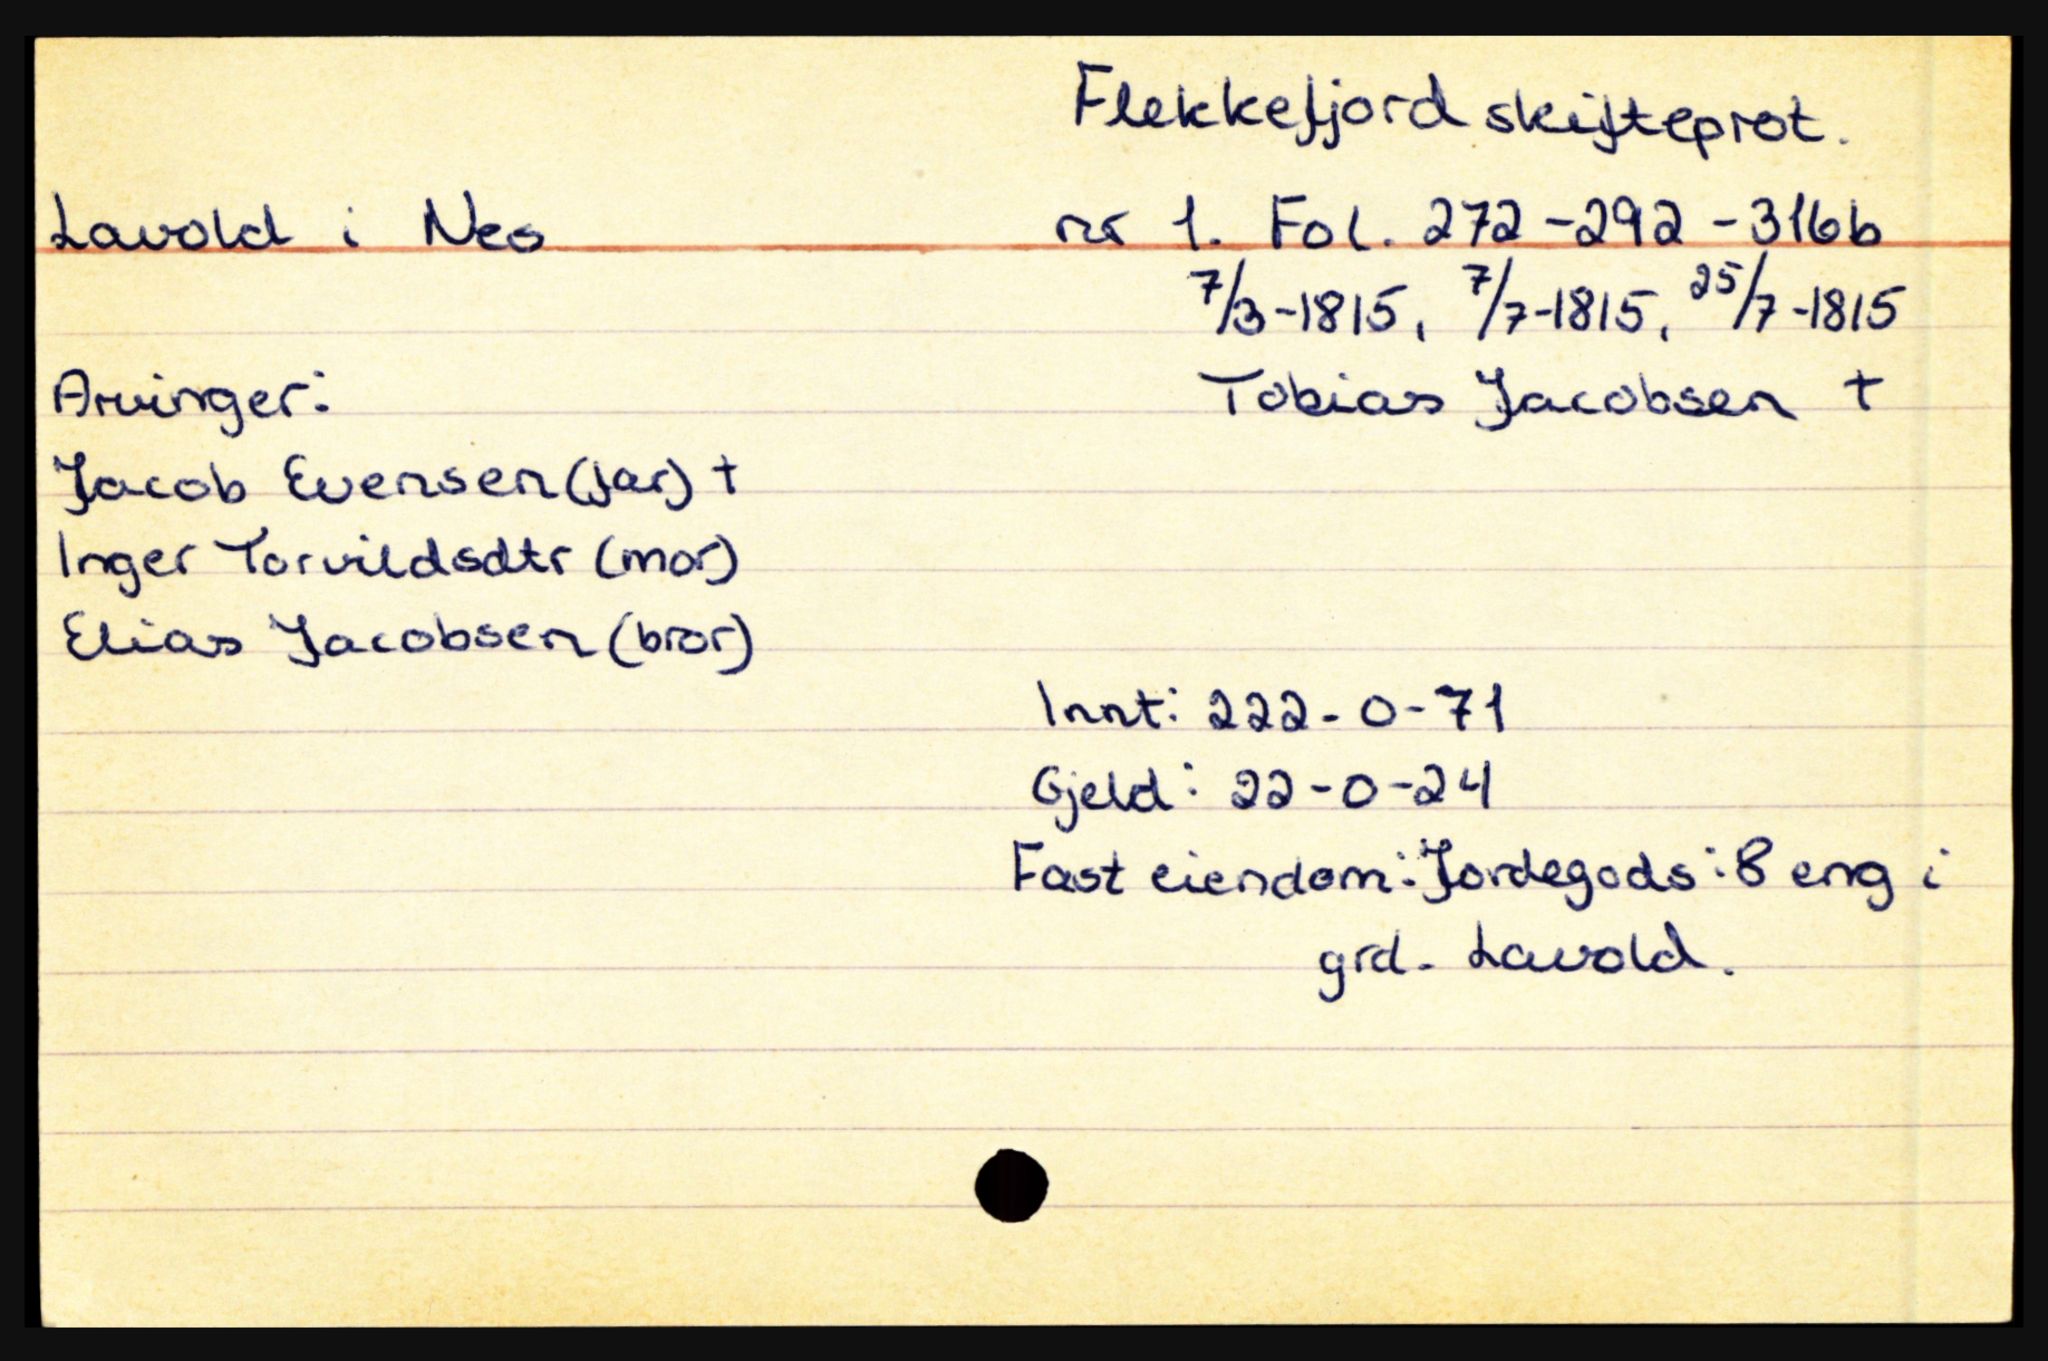 Flekkefjord skifteprot.
Lavold i Nes
nr 1. Fol. 272-292-316b
7/3-1815, 7/7-1815, 25/7-1815
Tobias Jacobsen †
Arvinger:
Jacob Evensen (far) †
Inger Torvildsdtr (mor)
Elias Jacobsen (bror)
Innt: 222-0-71
Gjeld: 22-0-24
Fast eiendom: Jordegods: 8 eng i
grd. Lavold.